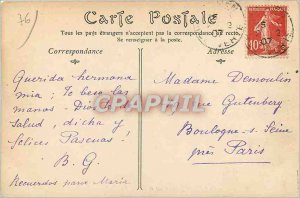 76
Carte Postale
Tous les pays étrangers n'acceptent pas la correspondance au recto.
Se renseigner à la poste.
Correspondance
Adresse
Querida hermana
mia; Te beso las
manos Dios
salud, dicha y
felices Pascuas!
B. G.
Recuerdos para Maria
Madame Demoulin
Rue Gutenberg
Boulogne s. Seine
près Paris
10
CPAPHIL.COM